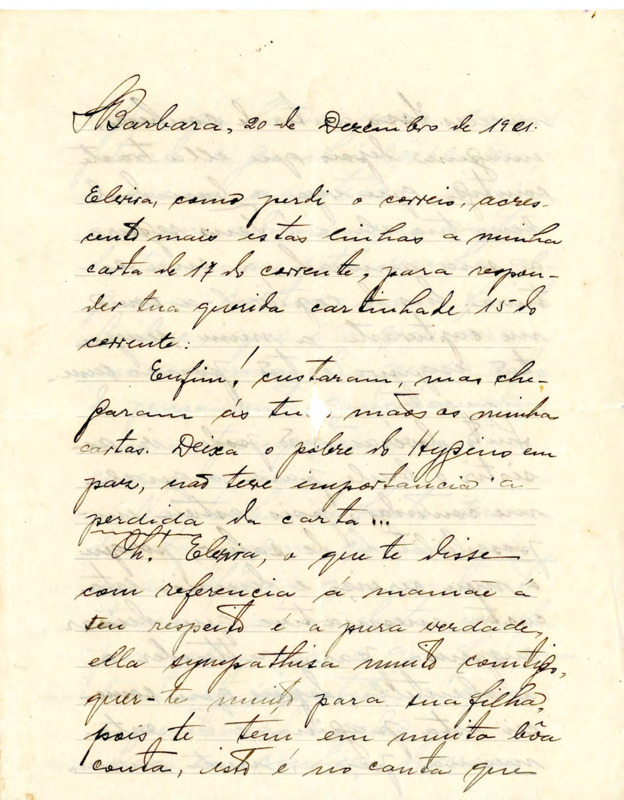 S Barbara, 20 de Dezembro de 1921.
Elvira, como perdi o correio, acres-
cento mais estas linhas a minha
carta de 17 do corrente, para respon-
der tua querida cartinha de 15 do
corrente:
Enfim! custaram, mas che-
garam ás tu , mãos as minha
cartas. Deixa o pobre do Hygino em
paz, não teve importancia a
perdida da carta...
Oh! Elvira, o que te disse
com referencia á mamãe á
teu respeito é a pura verdade,
ella sympathisa muito comtigo,
quer-te muito para sua filha,
pois, te tem em muita bôa
conta, isto é no conta que